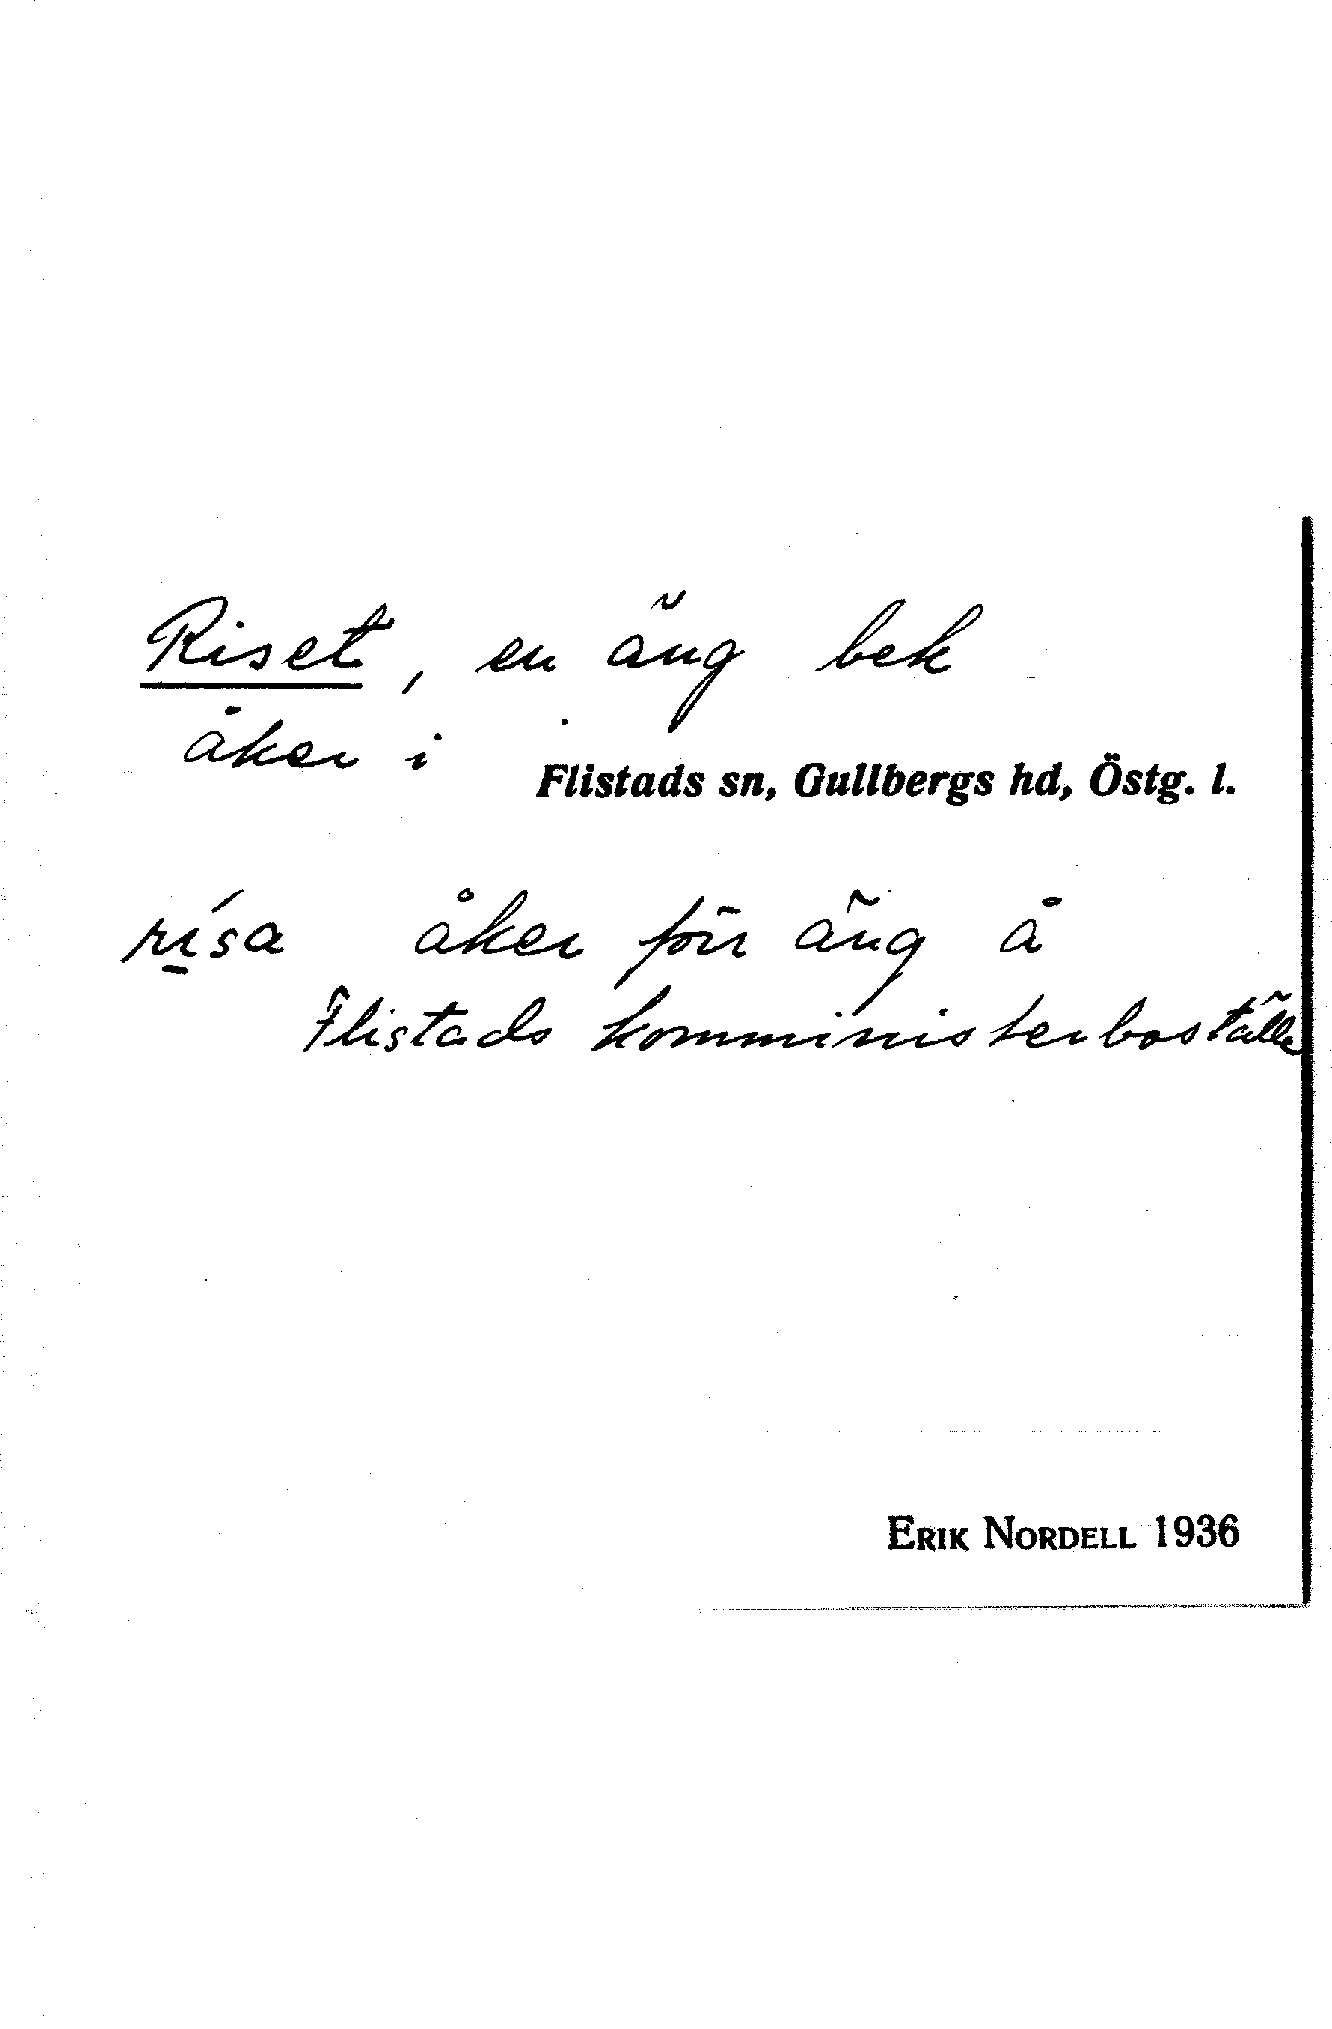 Riset, en äng bek
åker i
Flistads sn, Gullbergs hd, Östg. l.
rísa åker förr äng å
Flistads komministerboställe
ERIK NORDELL 1936